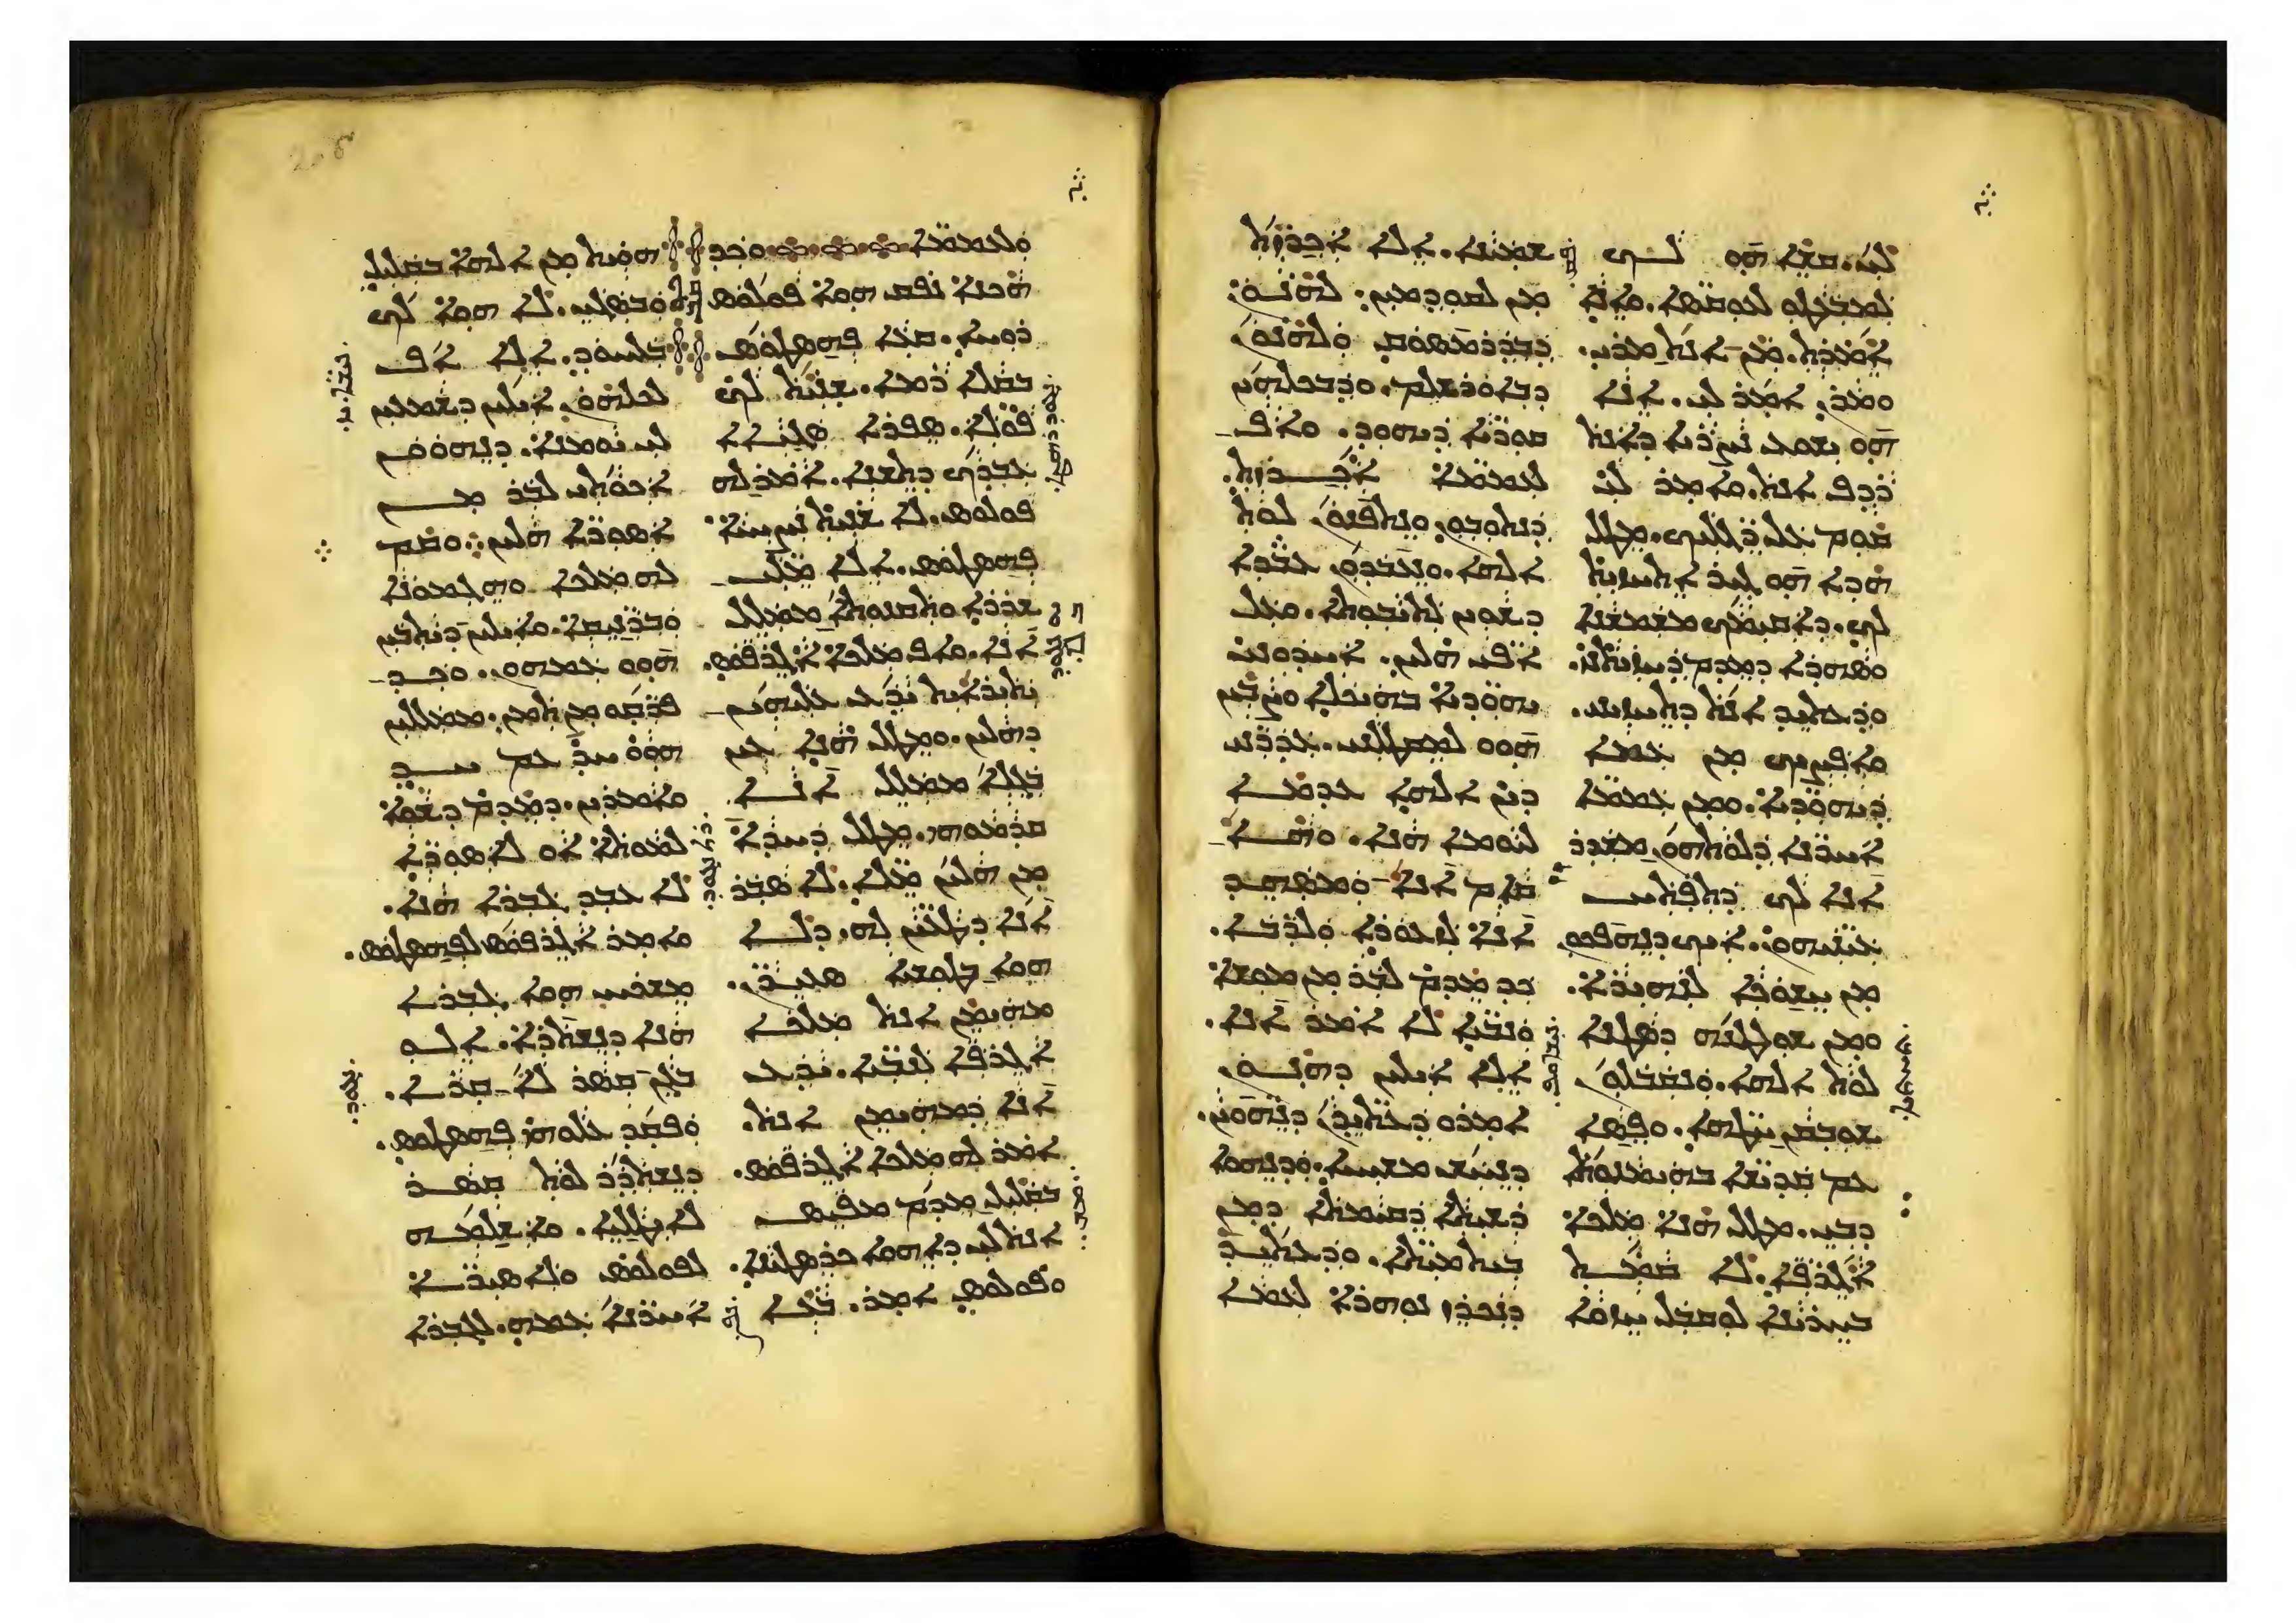 ܠܝ. ܩܫܐ ܗܘ ܠܟ
ܠܡܒܥܛܘ ܠܥܘܩܣܐ. ܘܐܢܐ
ܐܡܪܬ. ܡܢ ܐܢܬ ܡܪܝ.
ܘܡܪܢ ܐܡܪ ܠܝ. ܐܢܐ
ܗܘ ܝܫܘܥ ܢܨܪܝܐ ܕܐܢܬ
ܪܕܦ ܐܢܬ. ܘܐܡܪ ܠܝ
ܩܘܡ ܥܠ ܪܓܠܝܟ. ܡܛܠ
ܗܕܐ ܗܘ ܓܝܪ ܐܬܚܙܝܬ
ܠܟ. ܕܐܩܝܡܟ ܡܫܡܫܢܐ
ܘܣܗܕܐ ܕܡܕܡ ܕܚܙܝܬܢܝ.
ܘܕܥܬܝܕ ܐܢܬ ܕܬܚܙܝܢܝ.
ܘܐܦܨܝܟ ܡܢ ܥܡܐ
ܕܝܗܘܕܝܐ. ܘܡܢ ܥܡܡܐ
ܐܚܪܢܐ ܕܠܘܬܗܘܢ ܡܫܕܪ
ܐܢܐ ܠܟ ܕܬܦܬܚ
ܥܝܢܝܗܘܢ. ܐܝܟ ܕܢܗܦܟܘܢ
ܡܢ ܚܫܘܟܐ ܠܢܗܝܪܐ.
ܘܡܢ ܫܘܠܛܢܗ ܕܣܛܢܐ
ܠܘܬ ܐܠܗܐ. ܘܢܩܒܠܘܢ
ܫܘܒܩܢ ܚܛܗܐ. ܘܦܣܐ
ܥܡ ܩܕܝܫܐ ܒܗܝܡܢܘܬܐ
ܕܒܝ. ܡܛܠ ܗܢܐ ܡܠܟܐ
ܐܓܪܦܐ. ܠܐ ܩܡܬ
ܒܚܪܝܢܐ ܠܘܩܒܠ ܚܙܘܐ
ܫܡܝܢܐ. ܐܠܐ ܐܟܪܙܬ
ܡܢ ܠܩܘܕܡܝܢ. ܠܗܢܘܢ
ܕܒܕܪܡܣܘܩ ܘܠܗܢܘܢ
ܕܒܐܘܪܫܠܡ. ܘܕܒܟܠܗܝܢ
ܩܘܪܝܐ ܕܝܗܘܕ. ܘܐܦ
ܠܥܡܡܐ ܐܟܪܙܬ.
ܕܢܬܘܒܘܢ ܘܢܬܦܢܘܢ ܠܘܬ
ܐܠܗܐ. ܘܢܥܒܕܘܢ ܥܒܕܐ
ܕܫܘܝܢ ܠܬܝܒܘܬܐ. ܘܥܠ
ܐܦܝ ܗܠܝܢ. ܐܚܕܘܢܝ
ܝܗܘܕܝܐ ܒܗܝܟܠܐ ܘܨܒܝܢ
ܗܘܘ ܠܡܩܛܠܢܝ. ܥܕܪܢܝ
ܕܝܢ ܐܠܗܐ ܥܕܡܐ
ܠܝܘܡܐ ܗܢܐ. ܘܗܐ
ܩܐܡ ܐܢܐ ܘܡܣܗܕ
ܐܢܐ ܠܙܥܘܪܐ ܘܠܪܒܐ.
ܟܕ ܡܕܡ ܠܒܪ ܡܢ ܡܘܫܐ
ܘܢܒܝܐ ܠܐ ܐܡܪ ܐܢܐ.
ܐܠܐ ܐܝܠܝܢ ܕܗܢܘܢ
ܐܡܪܘ ܕܥܬܝܕܢ ܕܢܗܘܝܢ.
ܕܢܚܫ ܡܫܝܚܐ. ܘܕܢܗܘܐ
ܪܫܝܬܐ ܕܩܝܡܬܐ ܕܡܢ
ܒܝܬ ܡܝܬܐ. ܘܕܥܬܝܕ
ܕܢܟܪܙ ܢܘܗܪܐ ܠܥܡܐ
ܘܠܥܡܡܐ ܘܟܕ
ܗܟܢܐ ܢܦܩ ܗܘܐ ܦܘܠܘܣ
ܪܘܚܐ. ܩܥܐ ܦܗܣܛܘܣ
ܒܩܠܐ ܪܡܐ. ܫܢܝܬ ܠܟ
ܦܘܠܐ. ܣܦܪܐ ܣܓܝܐܐ
ܥܒܕܟ ܕܬܫܢܐ. ܐܡܪ ܠܗ
ܦܘܠܘܣ. ܠܐ ܫܢܝܬ ܢܨܝܚܐ
ܦܗܣܛܘܣ. ܐܠܐ ܡܠܝ
ܫܪܪܐ ܘܬܩܢܘܬܐ ܡܡܠܠ
ܐܢܐ. ܘܐܦ ܡܠܟܐ ܐܓܪܦܘܣ.
ܝܬܝܪܐܝܬ ܝܕܥ ܥܠܝܗܝܢ
ܕܗܠܝܢ. ܘܡܛܠ ܗܢܐ ܥܝܢ
ܒܓܠܐ ܡܡܠܠ ܐܢܐ
ܩܕܡܘܗܝ. ܡܛܠ ܕܚܕܐ
ܡܢ ܗܠܝܢ ܡܠܐ. ܠܐ ܣܒܪ
ܐܢܐ ܕܛܥܝܢ ܠܗ. ܕܠܐ
ܗܘܐ ܒܛܘܫܝܐ ܣܥܝܪܢ.
ܡܗܝܡܢ ܐܢܬ ܡܠܟܐ
ܐܓܪܦܐ ܠܢܒܝܐ. ܝܕܥ
ܐܢܐ ܕܡܗܝܡܢ ܐܢܬ.
ܐܡܪ ܠܗ ܡܠܟܐ ܐܓܪܦܘܣ.
ܒܩܠܝܠ ܡܕܡ ܡܦܝܣ
ܐܢܬ ܠܝ ܕܐܗܘܐ ܟܪܣܛܝܢܐ.
ܘܦܘܠܘܣ ܐܡܪ. ܒܥܐ
ܗܘܝܬ ܡܢ ܐܠܗܐ ܒܩܠܝܠ
ܘܒܣܓܝ. ܠܐ ܗܘܐ ܠܟ
ܒܠܚܘܕ. ܐܠܐ ܐܦ
ܠܟܠܗܘܢ ܐܝܠܝܢ ܕܫܡܥܝܢ
ܠܝ ܝܘܡܢܐ. ܕܢܗܘܘܢ
ܐܟܘܬܝ ܠܒܪ ܡܢ
ܐܣܘܪܐ ܗܠܝܢ. ܘܩܡ
ܠܗ ܡܠܟܐ ܘܗܓܡܘܢܐ
ܘܒܪܢܝܩܐ. ܘܐܝܠܝܢ ܕܝܬܒܝܢ
ܗܘܘ ܥܡܗܘܢ. ܘܟܕ
ܦܪܩܘ ܡܢ ܬܡܢ. ܡܡܠܠܝܢ
ܗܘܘ ܚܕ ܥܡ ܚܕ
ܘܐܡܪܝܢ. ܕܡܕܡ ܕܫܘܐ
ܠܡܘܬܐ ܐܘ ܠܐܣܘܪܐ
ܠܐ ܥܒܕ ܓܒܪܐ ܗܢܐ.
ܘܐܡܪ ܐܓܪܦܘܣ ܠܦܗܣܛܘܣ.
ܡܫܟܚ ܗܘܐ ܓܒܪܐ
ܗܢܐ ܕܢܫܬܪܐ. ܐܠܘ
ܒܓܢ ܩܣܪ ܠܐ ܩܪܐ.
ܘܦܩܕ ܥܠܘܗܝ ܦܗܣܛܘܣ.
ܕܢܫܬܕܪ ܠܘܬ ܩܣܪ
ܠܐܝܛܠܝܐ. ܘܐܫܠܡܗ
ܠܦܘܠܘܣ ܘܠܐܣܝܪܐ
ܐܚܪܢܐ ܥܡܗ. ܠܓܒܪܐ